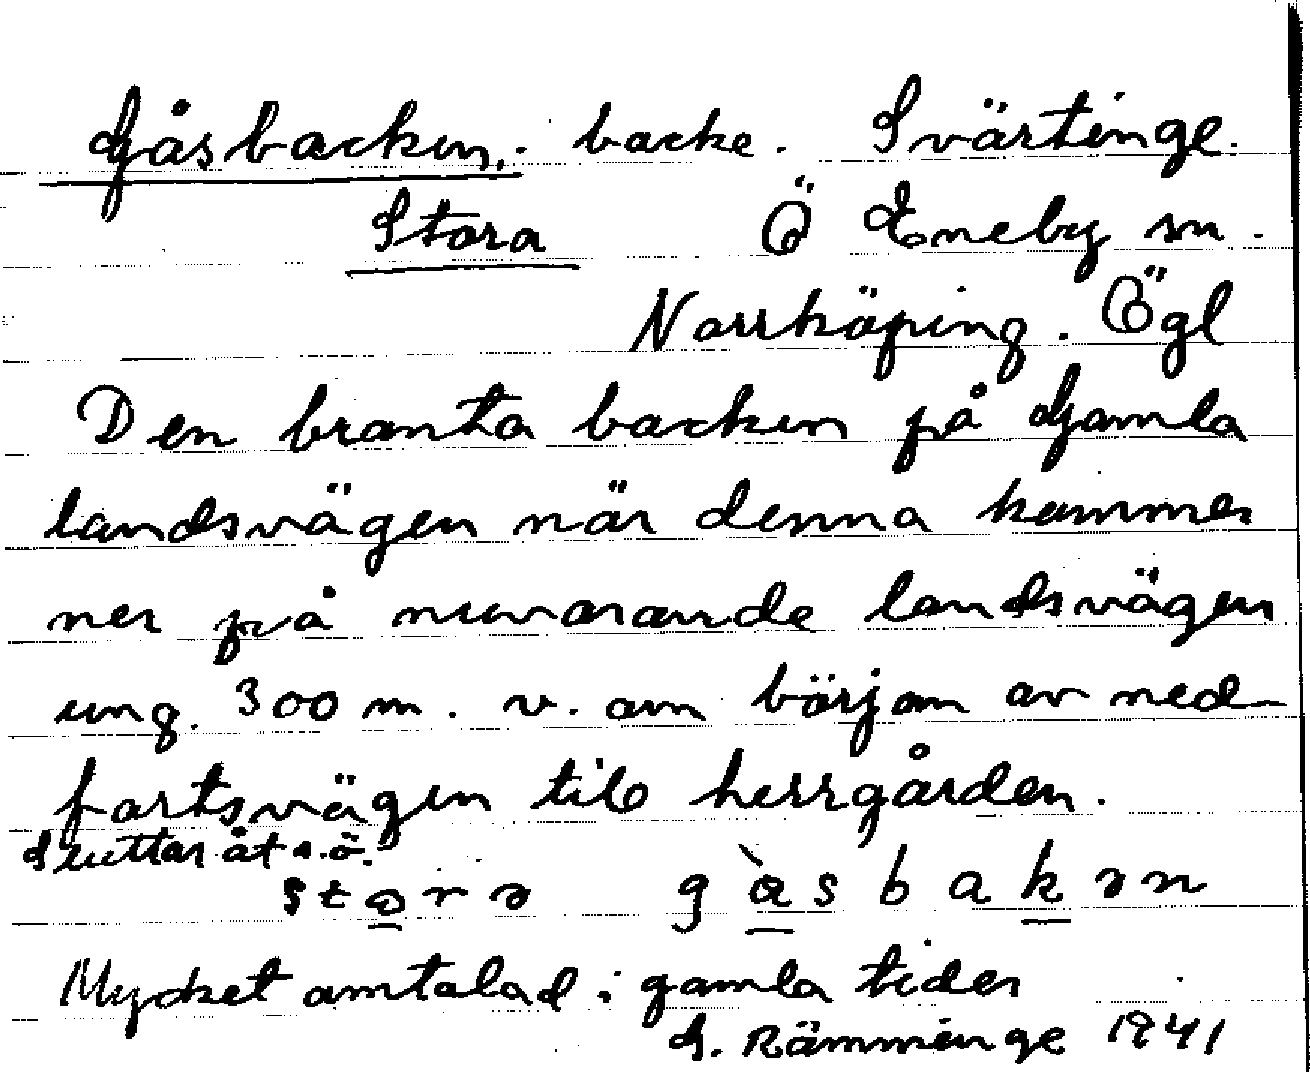 Gåsbacken, . backe. Svärtinge.
Stora Ö Eneby sn.
Norrköping. Ögl
Den branta backen på Gamla
landsvägen när denna kommer
ner på nuvarande landsvägen
ung. 300 m. v. om början av ned-
fartsvägen till herrgården.
Sluttar åt s.ö.
storə gàsbakən
Mycket omtalad i gamla tider
G. Rämminge 1941